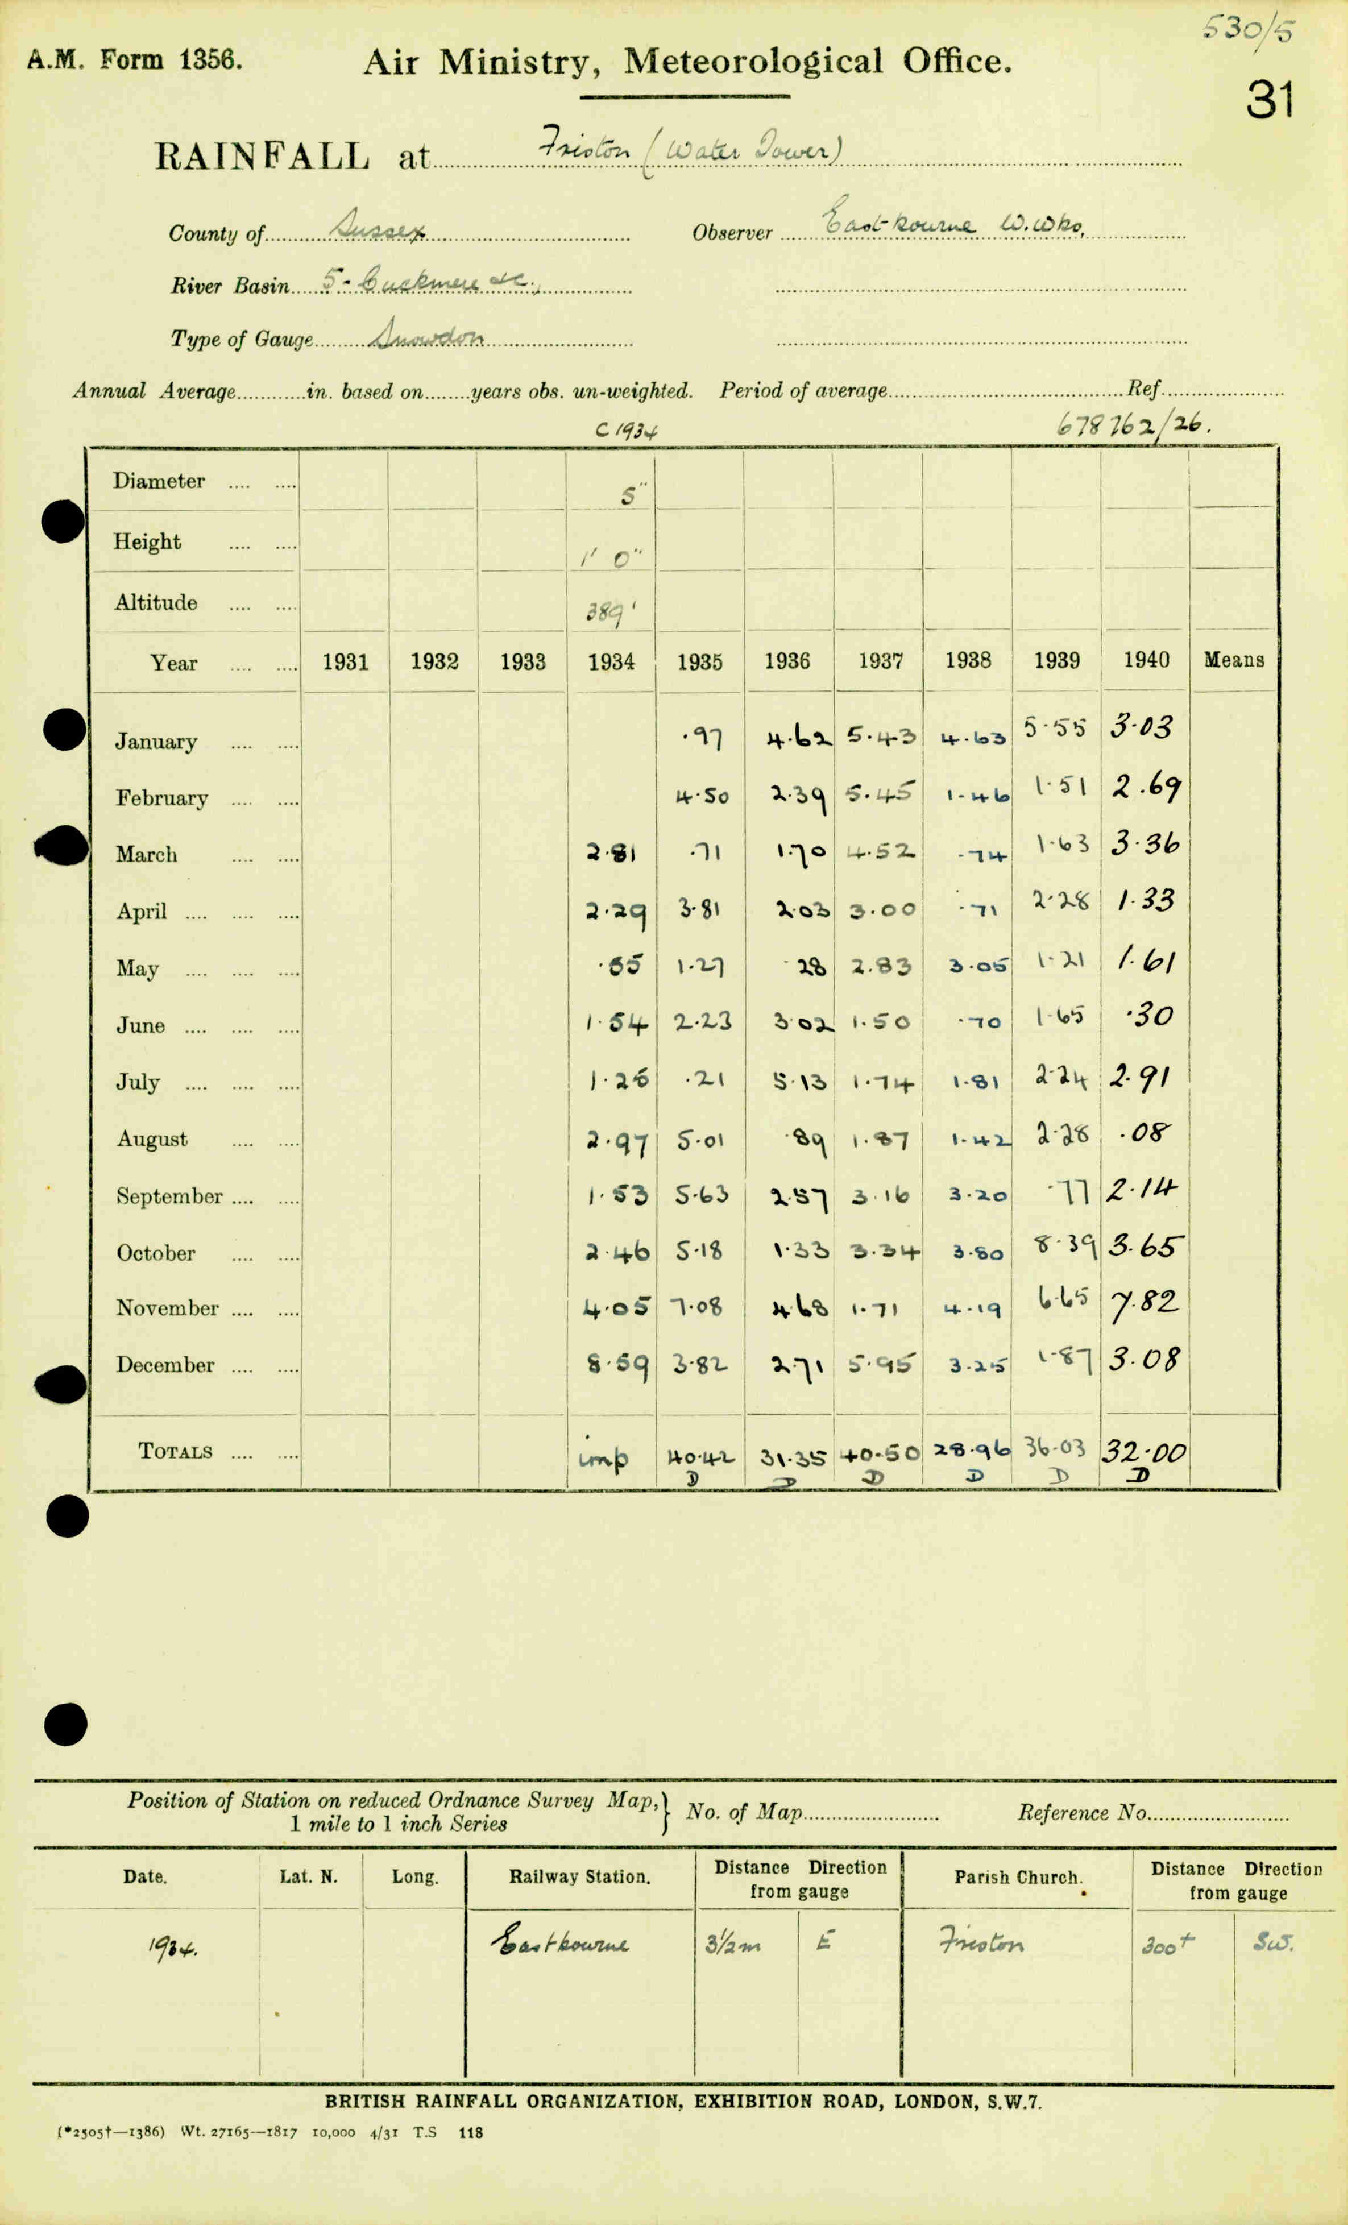 530/5
A.M. Form 1356. Air Ministry, Meteorological Office.
31
RAINFALL at Friston (Water Tower)
County of Sussex Observer Eastbourne W.Wks.
River Basin 5 - Cuckmere &c.,
Type of Gauge Snowdon
Annual Average in. based on years obs. un-weighted. Period of average Ref.
C 1934 678762/26.
Diameter 5"
Height 1' 0"
Altitude 389'
Year 1931 1932 1933 1934 1935 1936 1937 1938 1939 1940 Means
January .97 4.62 5.43 4.63 5.55 3.03
February 4.50 2.39 5.45 1.46 1.51 2.69
March 2.81 .71 1.70 4.52 .74 1.63 3.36
April 2.29 3.81 2.03 3.00 .71 2.28 1.33
May .55 1.27 .28 2.83 3.05 1.21 1.61
June 1.54 2.23 3.02 1.50 .70 1.65 .30
July 1.26 .21 5.13 1.74 1.81 2.24 2.91
August 2.97 5.01 .89 1.87 1.42 2.28 .08
September 1.53 5.63 2.57 3.16 3.20 .77 2.14
October 2.46 5.18 1.33 3.34 3.80 8.39 3.65
November 4.05 7.08 4.68 1.71 4.19 6.65 7.82
December 8.59 3.82 2.71 5.95 3.25 1.87 3.08
TOTALS imp 40.42 31.35 40.50 28.96 36.03 32.00
D D D D D D
Position of Station on reduced Ordnance Survey Map, } No. of Map Reference No.
1 mile to 1 inch Series
Date. Lat. N. Long. Railway Station. Distance Direction from gauge Parish Church. Distance Direction from gauge
1934. Eastbourne 3½m E Friston 300+ SW.
BRITISH RAINFALL ORGANIZATION, EXHIBITION ROAD, LONDON, S.W.7.
(*2505†—1386) Wt. 27165—1817 10,000 4/31 T.S 118